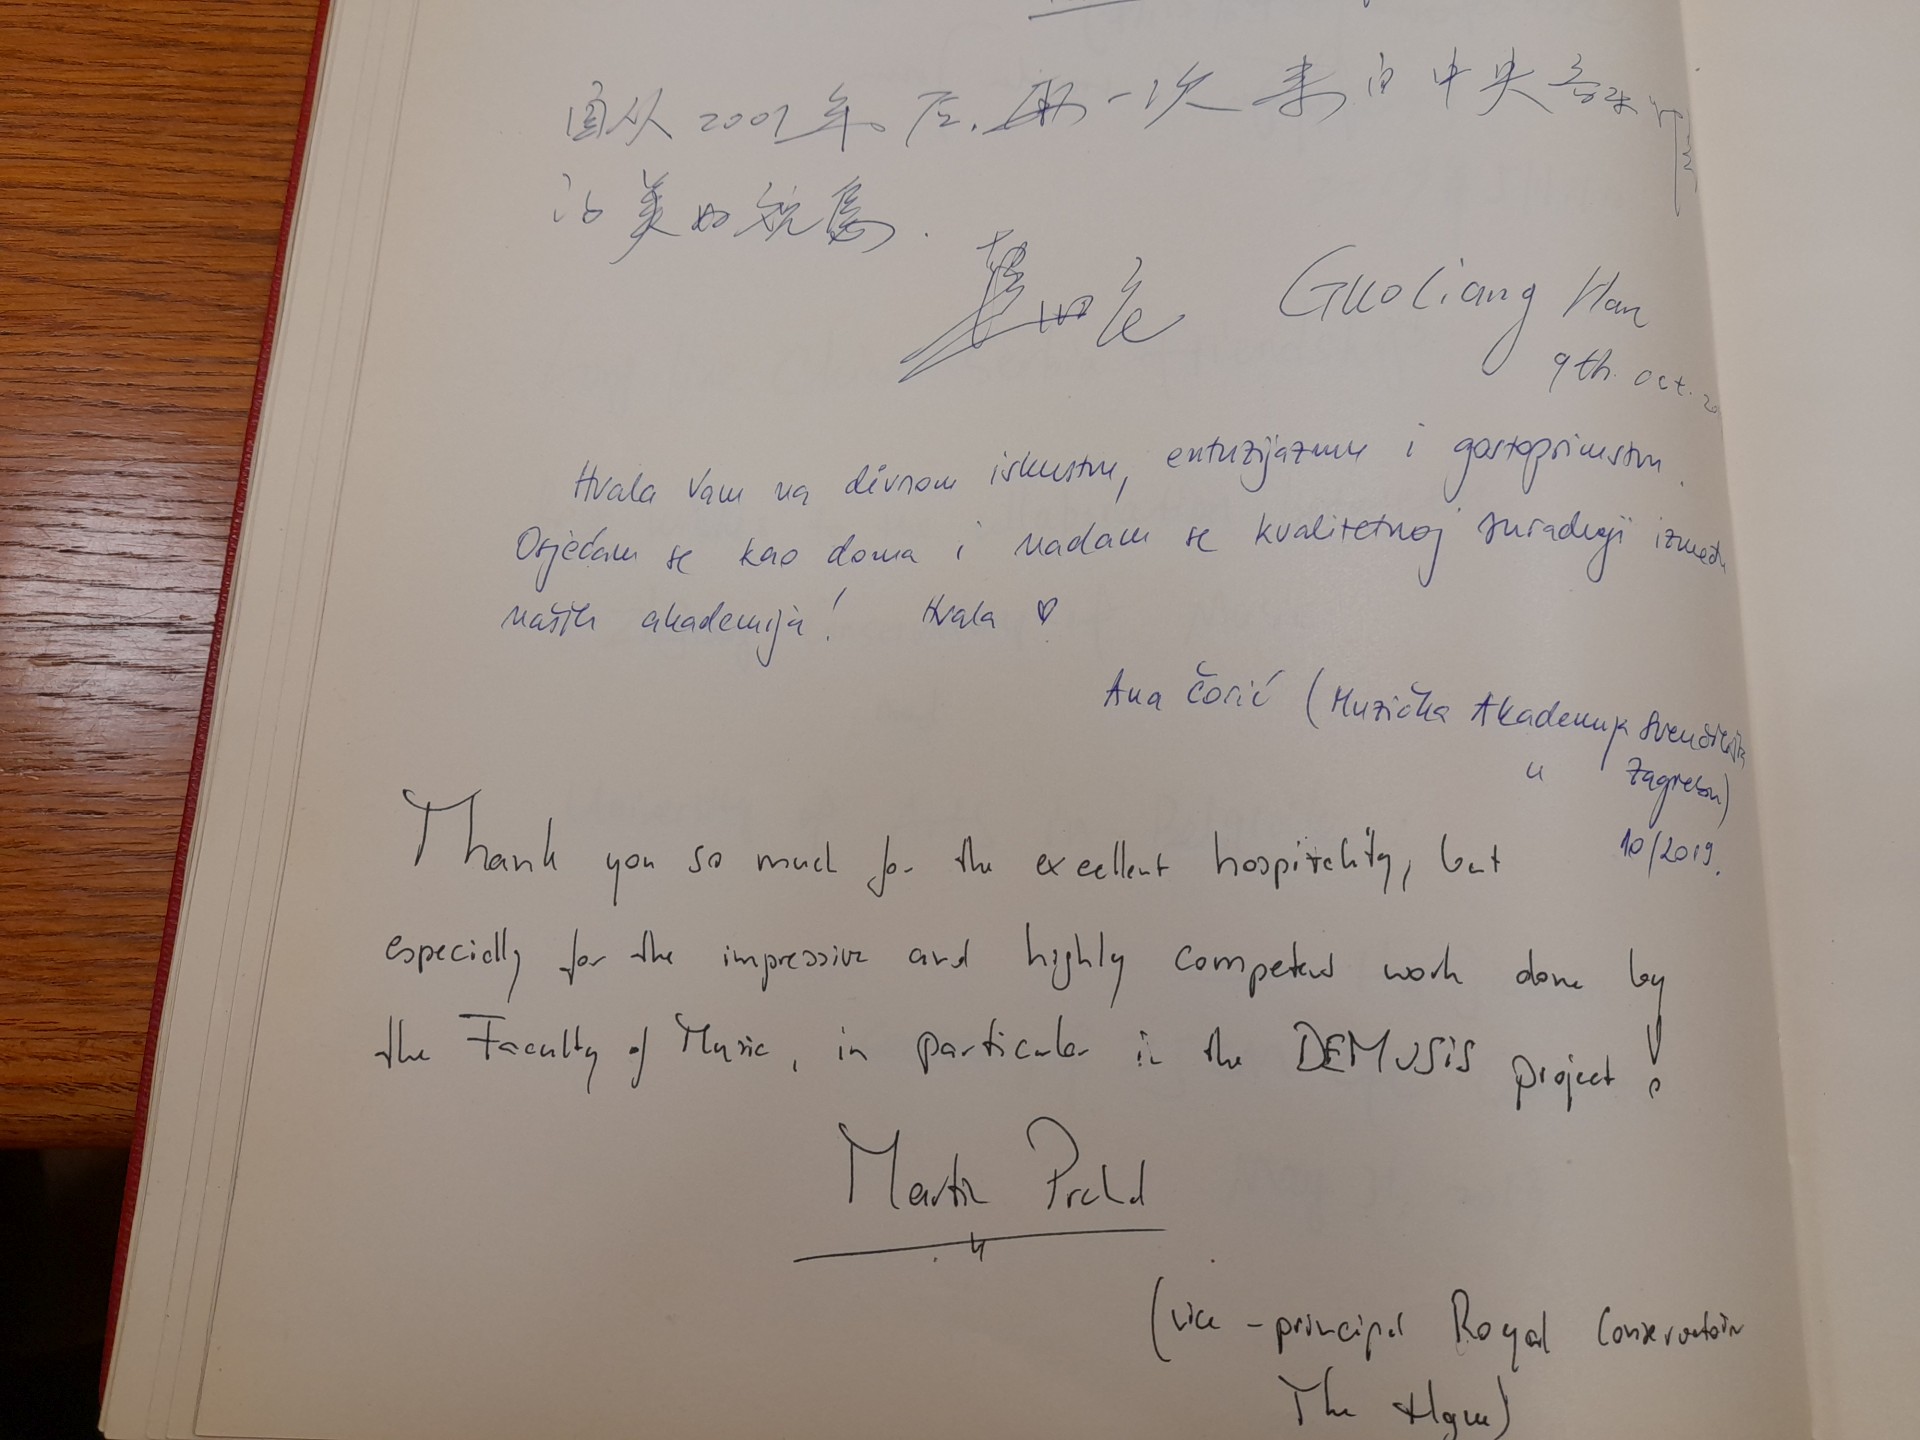 年后,再一次来自中央音
美的祝
Guoliang Han
9th. oct. 20
Hvala Vam na divnom iskustvu, entuzijazmu i gostoprimstvu.
Osjećam se kao doma i nadam se kvalitetnoj suradnji između
naših akademija! Hvala ♡
Ana Čorić (Muzička Akademija Sveučilišta
u Zagrebu)
10/2019.
Thank you so much for the excellent hospitality, but
especially for the impressive and highly competent work done by
the Faculty of Music, in particular in the DEMUSIS project!
Martin Prchal
(vice-principal Royal Conservatoire
The Hague)